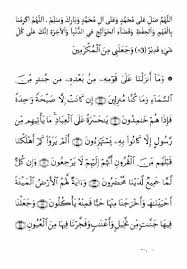 اَللّٰهُمَّ صَلِّ عَلَى مُحَمَّدٍ وَعَلَى آلِ مُحَمَّدٍ وَبَارِكْ وَسَلِّمْ ، اَللّٰهُمَّ اكْرِمْنَا
بِالْفَهْمِ وَالْحِفْظِ وَقَضَاءِ الْحَوَائِجِ فِي الدُّنْيَا وَالْآخِرَةِ إِنَّكَ عَلَى كُلِّ
شَيْءٍ قَدِيرٌ (٣×) وَجَعَلَنِي مِنَ الْمُكْرَمِينَ
۞ وَمَآ أَنزَلْنَا عَلَىٰ قَوْمِهِۦ مِنۢ بَعْدِهِۦ مِن جُندٍ مِّنَ
ٱلسَّمَآءِ وَمَا كُنَّا مُنزِلِينَ ۝ إِن كَانَتْ إِلَّا صَيْحَةً وَٰحِدَةً
فَإِذَا هُمْ خَٰمِدُونَ ۝ يَٰحَسْرَةً عَلَى ٱلْعِبَادِ مَا يَأْتِيهِم مِّن
رَّسُولٍ إِلَّا كَانُوا۟ بِهِۦ يَسْتَهْزِءُونَ ۝ أَلَمْ يَرَوْا۟ كَمْ أَهْلَكْنَا
قَبْلَهُم مِّنَ ٱلْقُرُونِ أَنَّهُمْ إِلَيْهِمْ لَا يَرْجِعُونَ ۝ وَإِن كُلٌّ
لَّمَّا جَمِيعٌ لَّدَيْنَا مُحْضَرُونَ ۝ وَءَايَةٌ لَّهُمُ ٱلْأَرْضُ ٱلْمَيْتَةُ
أَحْيَيْنَٰهَا وَأَخْرَجْنَا مِنْهَا حَبًّا فَمِنْهُ يَأْكُلُونَ ۝ وَجَعَلْنَا
فِيهَا جَنَّٰتٍ مِّن نَّخِيلٍ وَأَعْنَٰبٍ وَفَجَّرْنَا فِيهَا مِنَ ٱلْعُيُونِ ۝